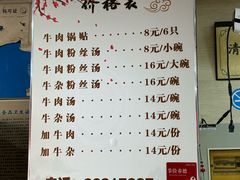 价格表
牛肉锅贴 8元/6只
牛肉粉丝汤 8元/小碗
牛肉粉丝汤 16元/大碗
牛杂粉丝汤 16元/碗
牛肉汤 14元/碗
牛杂汤 14元/碗
加牛肉 14元/份
加牛杂 14元/份
清